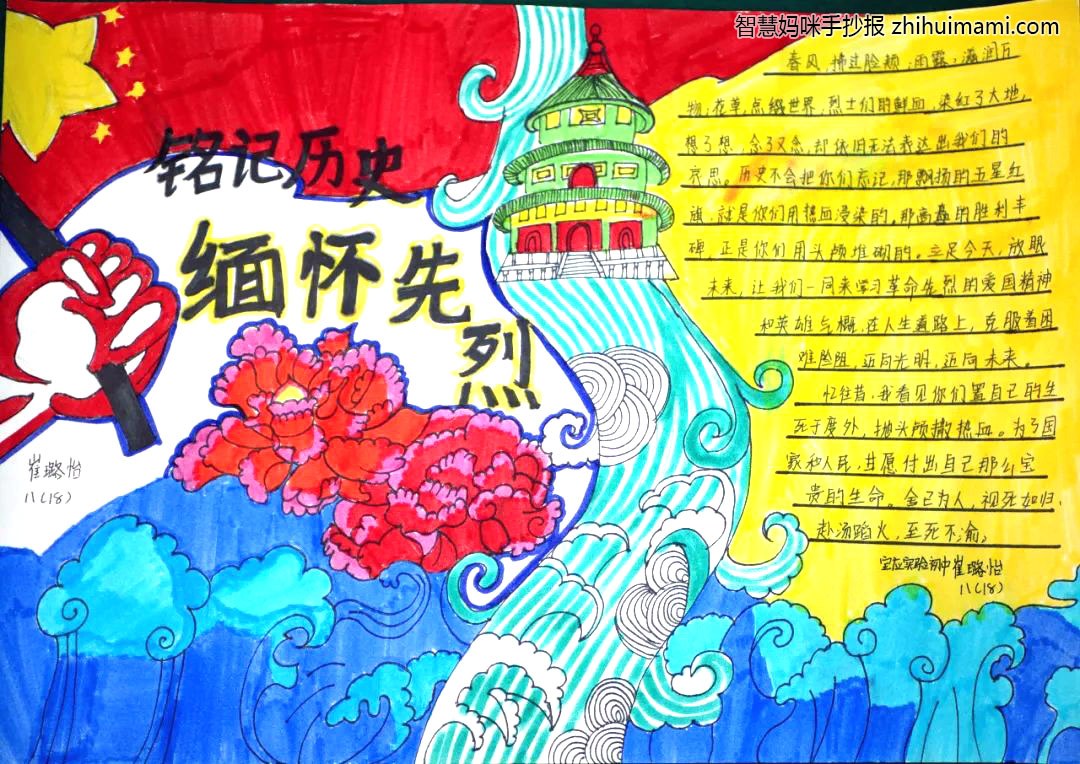 智慧妈咪手抄报 zhihuimami.com
铭记历史
缅怀先
烈
崔璐怡
八(18)
春风,拂过脸颊;雨露,滋润万
物;花草,点缀世界,烈士们的鲜血,染红了大地,
想了想,念了又念,却依旧无法表达出我们的
哀思。历史不会把你们忘记,那飘扬的五星红
旗,就是你们用热血浸染的,那高矗的胜利丰
碑,正是你们用头颅堆砌的。立足今天,放眼
未来,让我们一同来学习革命先烈的爱国精神
和英雄气概,在人生道路上,克服着困
难险阻,迈向光明,迈向未来。
忆往昔,我看见你们置自己的生
死于度外,抛头颅撒热血。为了国
家和人民,甘愿付出自己那么宝
贵的生命。舍己为人,视死如归,
赴汤蹈火,至死不渝,
宝应实验初中崔璐怡
八(18)